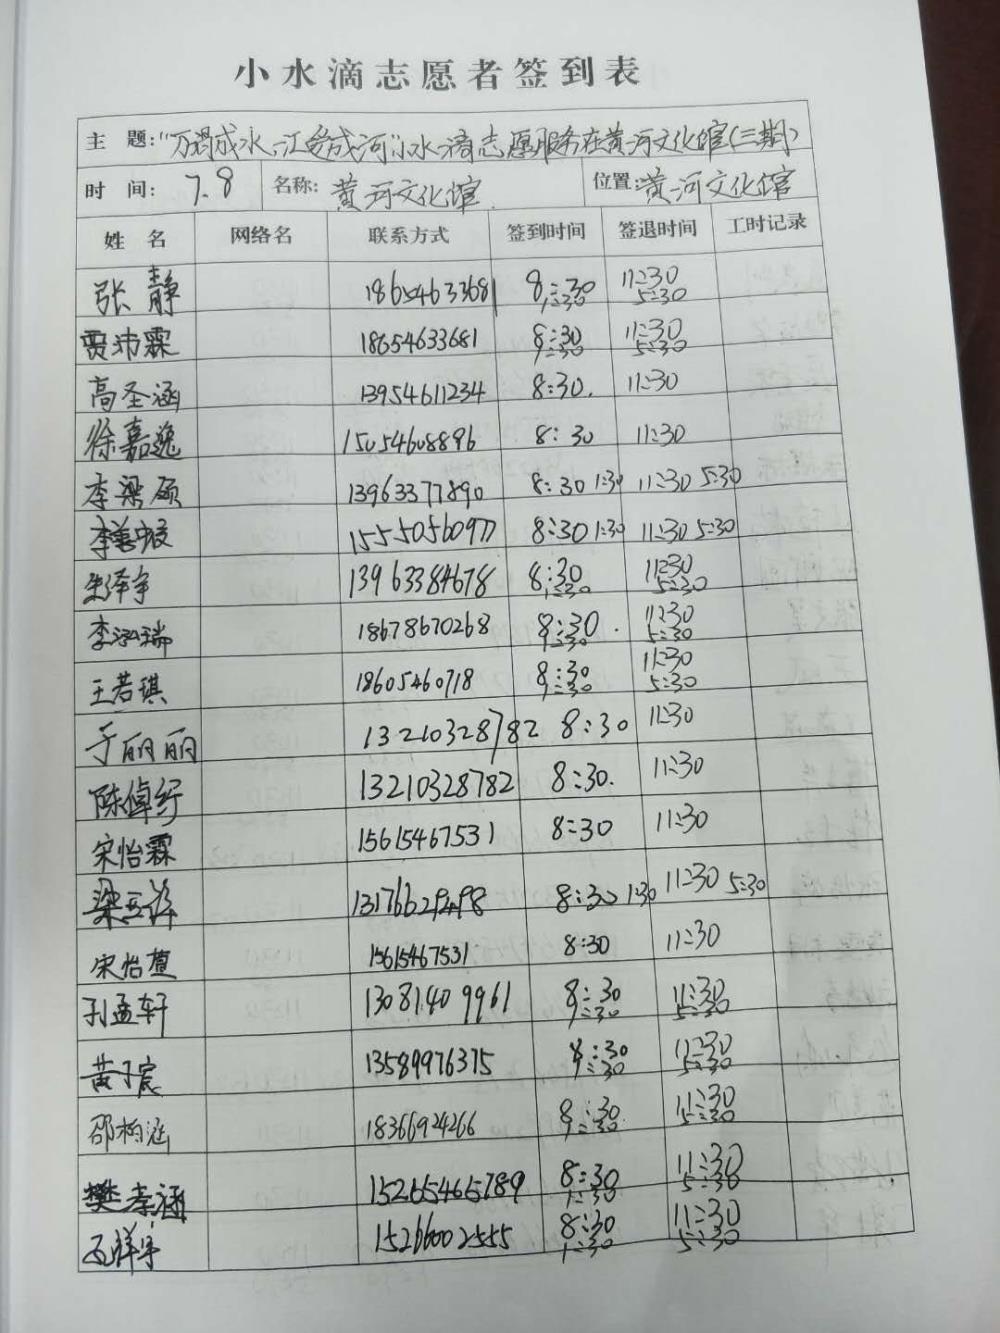 小水滴志愿者签到表
主 题:“万涓成水、汇流成河”小水滴志愿服务在黄河文化馆(三期)
时 间: 7.8 名称: 黄河文化馆 位置: 黄河文化馆
姓 名 网络名 联系方式 签到时间 签退时间 工时记录
张静 18654633681 8:30 1:30 11:30 5:30
贾沛霖 18654633681 8:30 1:30 11:30 5:30
高圣涵 13954611234 8:30. 11:30
徐嘉逸 15054608896 8:30 11:30
李梁硕 13963377890 8:30 1:30 11:30 5:30
李 15550560977 8:30 1:30 11:30 5:30
朱泽宇 13963384678 8:30 1:30 11:30 5:30
李泓瑞 18678670268 8:30 1:30 11:30 5:30
王若琪 18605460718 8:30 1:30 11:30 5:30
于丽丽 13210328782 8:30 11:30
陈倬纾 13210328782 8:30. 11:30
宋怡霖 15615467531 8:30 11:30
梁 8:30 1:30 11:30 5:30
宋怡萱 15615467531 8:30 11:30
孙孟轩 13081409961 8:30 1:30 11:30 5:30
黄子宸 13589976375 8:30 1:30 11:30 5:30
邵柏涵 18366924266 8:30 1:30 11:30 5:30
樊孝涵 15265465789 8:30 1:30 11:30 5:30
祥宇 15266002555 8:30 1:30 11:30 5:30